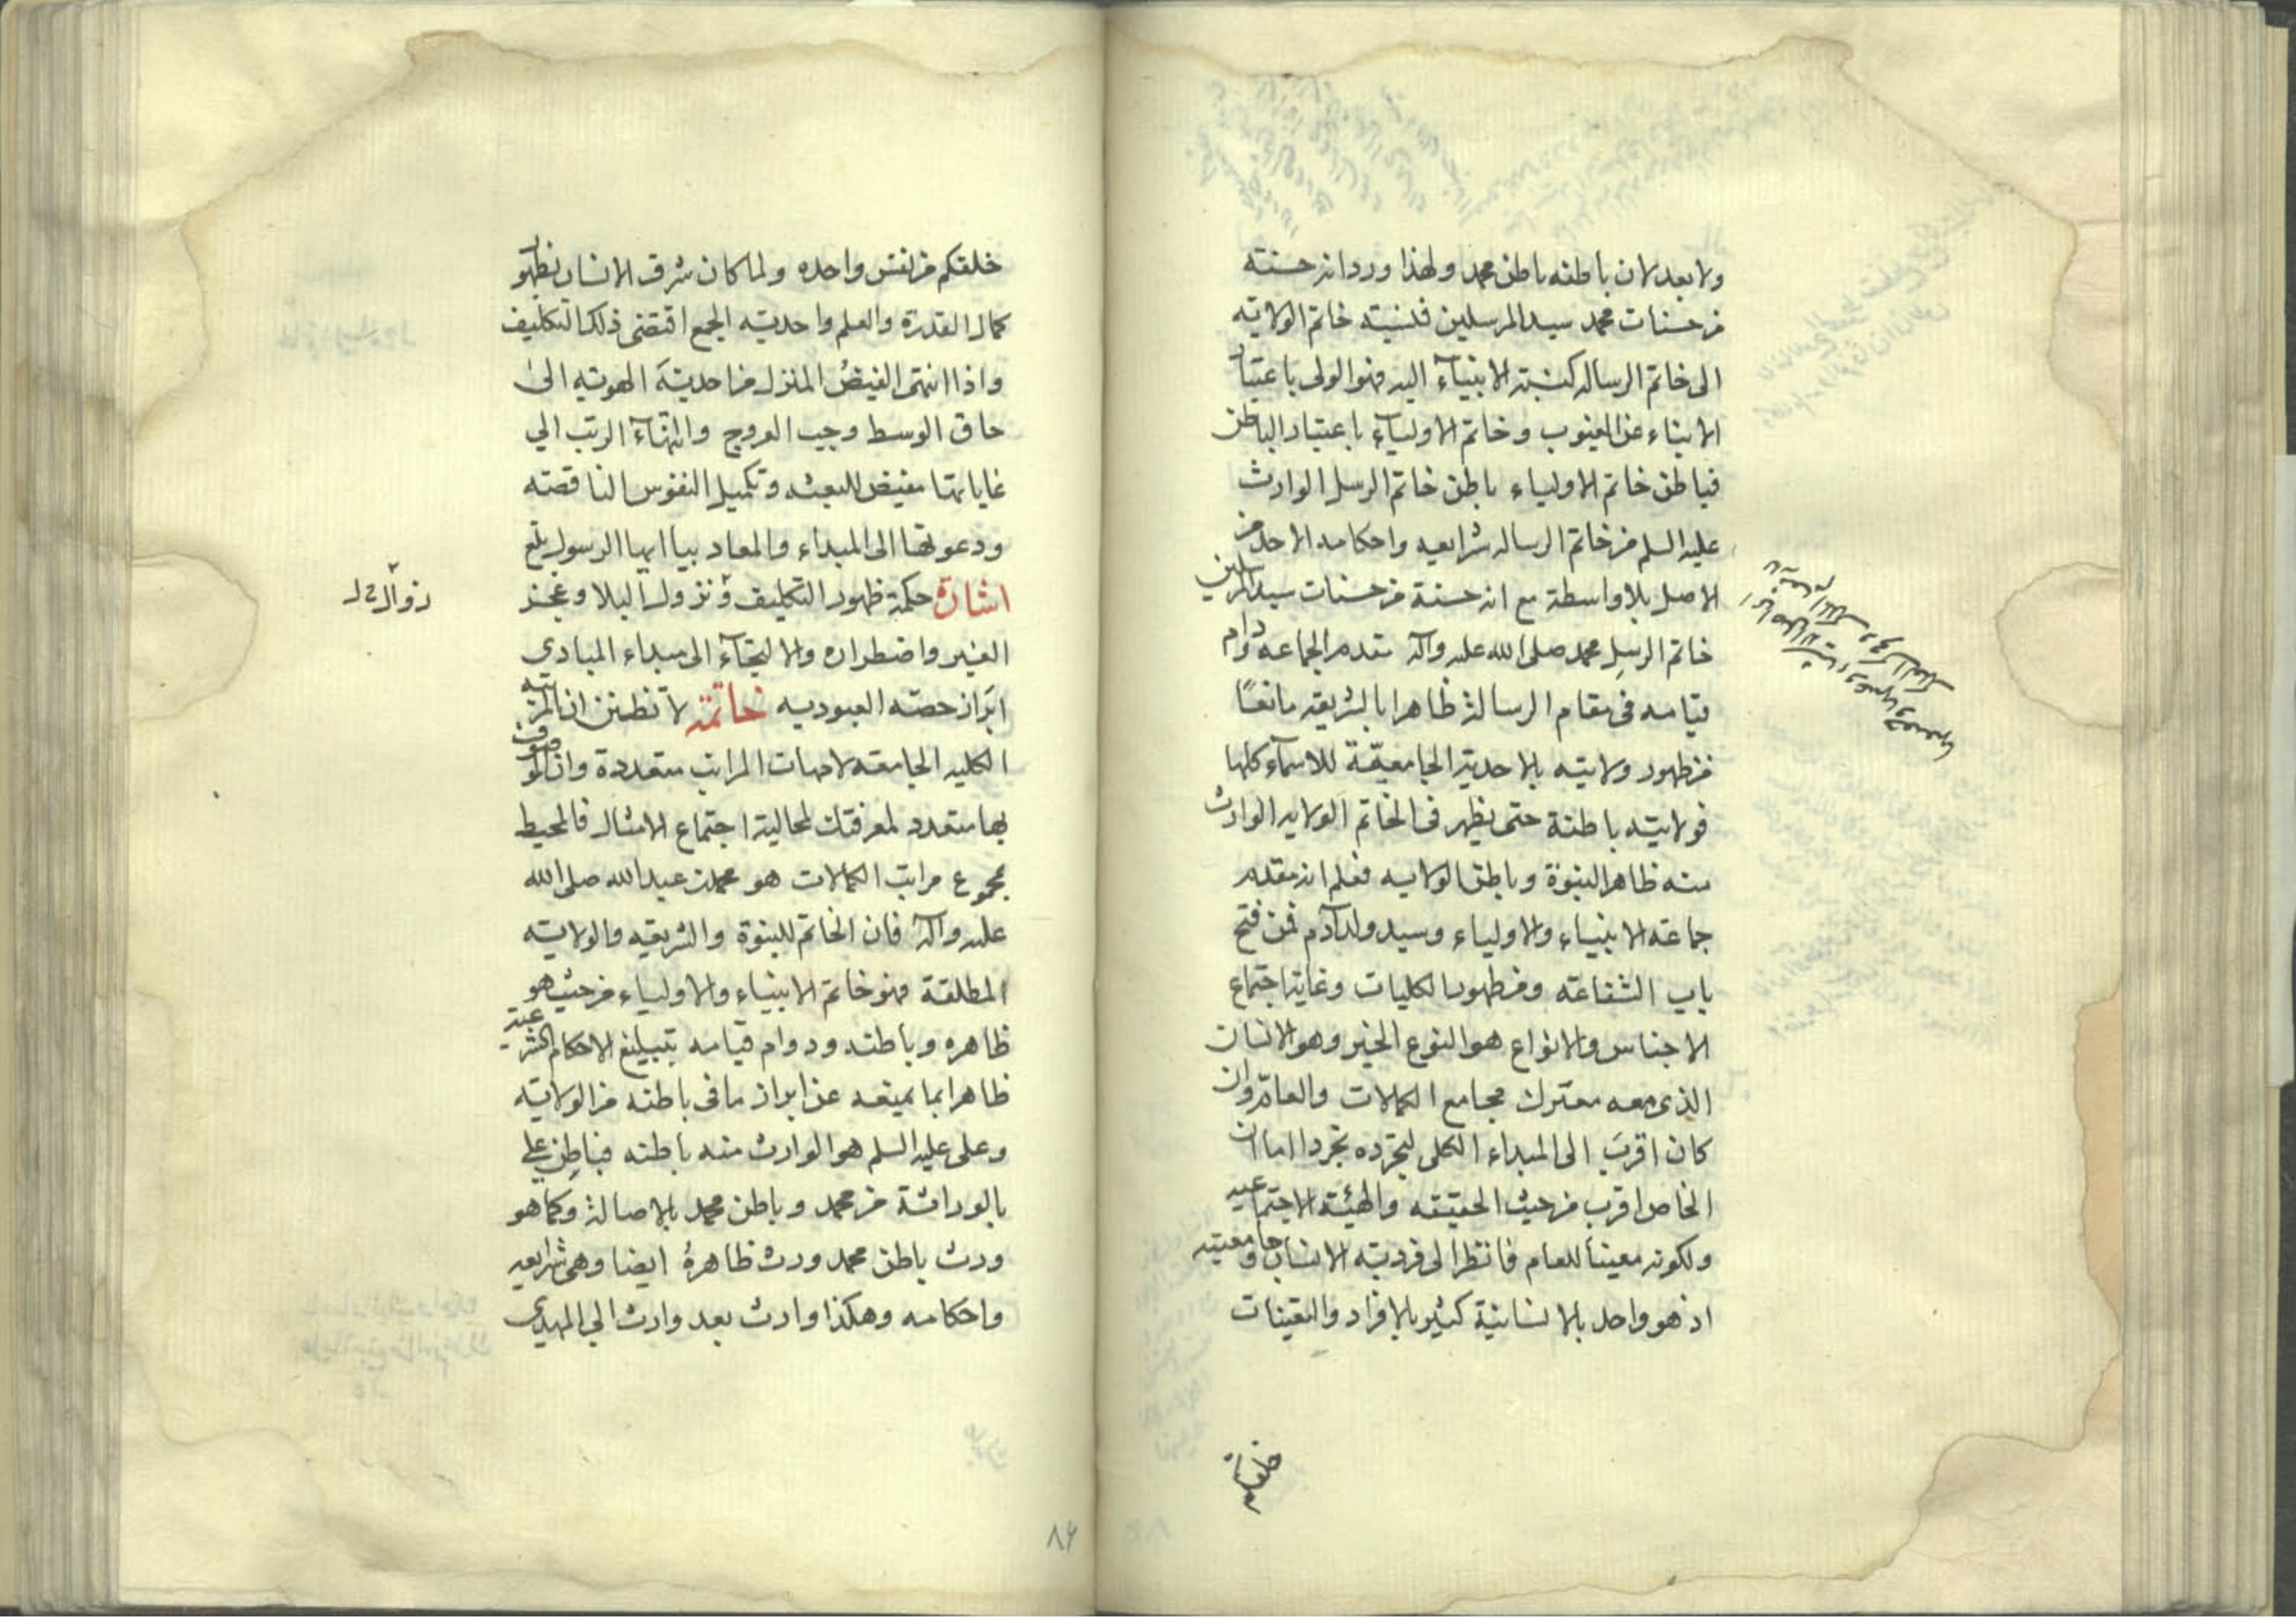 ولا بعد لان باطنه باطن محمد ولهذا ورد انه حسنة
من حسنات محمد سيد المرسلين فنسبته خاتم الولاية
الى خاتم الرساله كنسبة الانبياء اليه فهو الولى باعتبار
الانباء عن الغيوب وخاتم الاولياء باعتبار الباطن
فباطن خاتم الاولياء باطن خاتم الرسل الوارث
عليه السلم من خاتم الرساله شرايعه واحكامه الاخذ من
الاصل بلا واسطة مع انه حسنة من حسنات سيد المرسلين
خاتم الرسل محمد صلى الله عليه وآله مقدم الجماعه دوام
قيامه فى مقام الرسالة ظاهرا بالشريعة مانعًا
من ظهور ولايته بالاحدية الجامعية للاسماء كلها
فولايته باطنة حتى يظهر فى الخاتم الولايه الوارث
منه ظاهر النبوة وباطن الولايه فعلم انه مقدم
جماعة الانبياء والاولياء وسيد ولد آدم فمن فتح
باب الشفاعة ومن ظهور الكليات وغاية اجتماع
الاجناس والانواع هو النوع الاخير وهو الانسان
الذى معه معترك مجامع الكمالات والعام وان
كان اقرب الى المبداء الكلى لتجرده تجردا اما ان
الخاص اقرب من حيث الحقيقه والهيئة الاجتماعيه
ولكونه معينا للعام فانظر الى فردية الانسان وجامعيته
اذ هو واحد بالانسانية كثير بالافراد والتعينات
خلقكم من نفس واحده ولما كان شرف الانسان بظهور
كمال القدرة والعلم واحدية الجمع اقتضى ذلك التكليف
واذا انتهى الفيض المنزل من احدية الهوية الى
حاق الوسط وجب العروج وانتهاء الرتب الي
غاياتها مفيض للبعثه وتكميل النفوس الناقصة
ودعوتها الى المبداء والمعاد بيا ايها الرسول بلغ
اشارة حكمة ظهور التكليف ونزول البلا وعجز
الغير واضطراره والالتجاء الى مبداء المبادى
ابراز حصة العبوديه خاتمة لا تظنن ان المرتبه
الكليه الجامعة لامهات المراتب متعددة وان الموصوف
بها متعدد لمعرفتك لمحالية اجتماع الامثال فالمحيط
بمجموع مراتب الكمالات هو محمد بن عبد الله صلى الله
عليه وآله فان الخاتم للنبوة والشريعه والولاية
المطلقة فهو خاتم الانبياء والاولياء من حيث هو
ظاهره وباطنه ودوام قيامه بتبليغ الاحكام الشرعية
ظاهرا بما يمنعه عن ابراز ما فى باطنه من الولاية
وعلى عليه السلم هو الوارث منه باطنه فباطن علي
بالوراثة من محمد وباطن محمد بالاصالة وكما هو
ورث باطن محمد ورث ظاهرهُ ايضا وهى شرايعه
واحكامه وهكذا وارث بعد وارث الي المهدى
٨٤